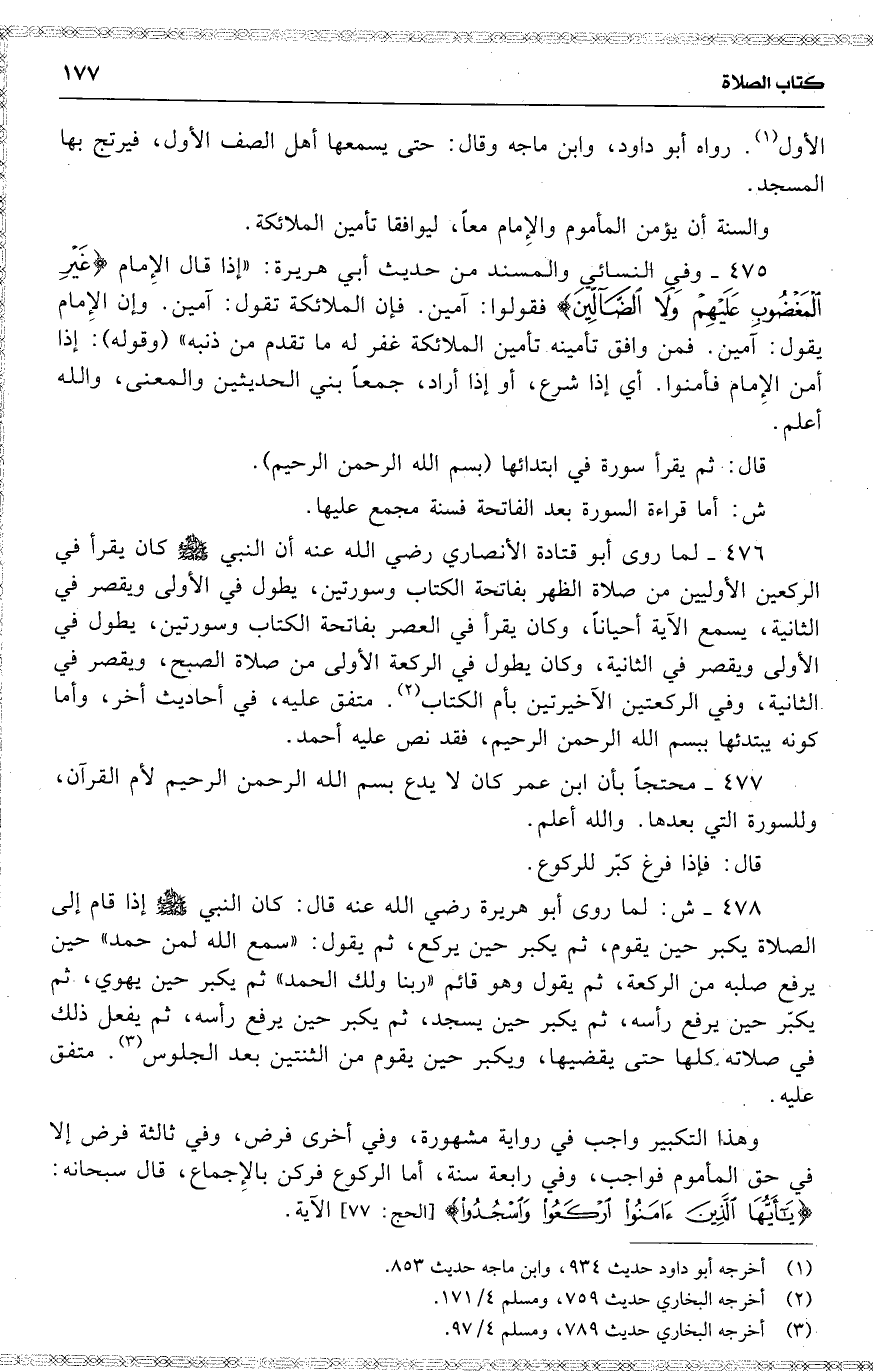 كتاب الصلاة ١٧٧
الأول(١). رواه أبو داود، وابن ماجه وقال: حتى يسمعها أهل الصف الأول، فيرتج بها
المسجد.
والسنة أن يؤمن المأموم والإمام معاً، ليوافقا تأمين الملائكة.
٤٧٥ ـ وفي النسائي والمسند من حديث أبي هريرة: «إذا قال الإمام ﴿غَيْرِ
ٱلْمَغْضُوبِ عَلَيْهِمْ وَلَا ٱلضَّآلِّينَ﴾ فقولوا: آمين. فإن الملائكة تقول: آمين. وإن الإمام
يقول: آمين. فمن وافق تأمينه تأمين الملائكة غفر له ما تقدم من ذنبه» (وقوله): إذا
أمن الإمام فأمنوا. أي إذا شرع، أو إذا أراد، جمعاً بني الحديثين والمعنى، والله
أعلم.
قال: ثم يقرأ سورة في ابتدائها (بسم الله الرحمن الرحيم).
ش: أما قراءة السورة بعد الفاتحة فسنة مجمع عليها.
٤٧٦ ـ لما روى أبو قتادة الأنصاري رضي الله عنه أن النبي ﷺ كان يقرأ في
الركعين الأوليين من صلاة الظهر بفاتحة الكتاب وسورتين، يطول في الأولى ويقصر في
الثانية، يسمع الآية أحياناً، وكان يقرأ في العصر بفاتحة الكتاب وسورتين، يطول في
الأولى ويقصر في الثانية، وكان يطول في الركعة الأولى من صلاة الصبح، ويقصر في
الثانية، وفي الركعتين الآخيرتين بأم الكتاب(٢). متفق عليه، في أحاديث أخر، وأما
كونه يبتدئها ببسم الله الرحمن الرحيم، فقد نص عليه أحمد.
٤٧٧ ـ محتجاً بأن ابن عمر كان لا يدع بسم الله الرحمن الرحيم لأم القرآن،
وللسورة التي بعدها. والله أعلم.
قال: فإذا فرغ كبّر للركوع.
٤٧٨ ـ ش: لما روى أبو هريرة رضي الله عنه قال: كان النبي ﷺ إذا قام إلى
الصلاة يكبر حين يقوم، ثم يكبر حين يركع، ثم يقول: «سمع الله لمن حمد» حين
يرفع صلبه من الركعة، ثم يقول وهو قائم «ربنا ولك الحمد» ثم يكبر حين يهوي، ثم
يكبّر حين يرفع رأسه، ثم يكبر حين يسجد، ثم يكبر حين يرفع رأسه، ثم يفعل ذلك
في صلاته كلها حتى يقضيها، ويكبر حين يقوم من الثنتين بعد الجلوس(٣). متفق
عليه.
وهذا التكبير واجب في رواية مشهورة، وفي أخرى فرض، وفي ثالثة فرض إلا
في حق المأموم فواجب، وفي رابعة سنة، أما الركوع فركن بالإجماع، قال سبحانه:
﴿يَٰٓأَيُّهَا ٱلَّذِينَ ءَامَنُوا۟ ٱرْكَعُوا۟ وَٱسْجُدُوا۟﴾ [الحج: ٧٧] الآية.
(١) أخرجه أبو داود حديث ٩٣٤، وابن ماجه حديث ٨٥٣.
(٢) أخرجه البخاري حديث ٧٥٩، ومسلم ٤/ ١٧١.
(٣) أخرجه البخاري حديث ٧٨٩، ومسلم ٤/ ٩٧.